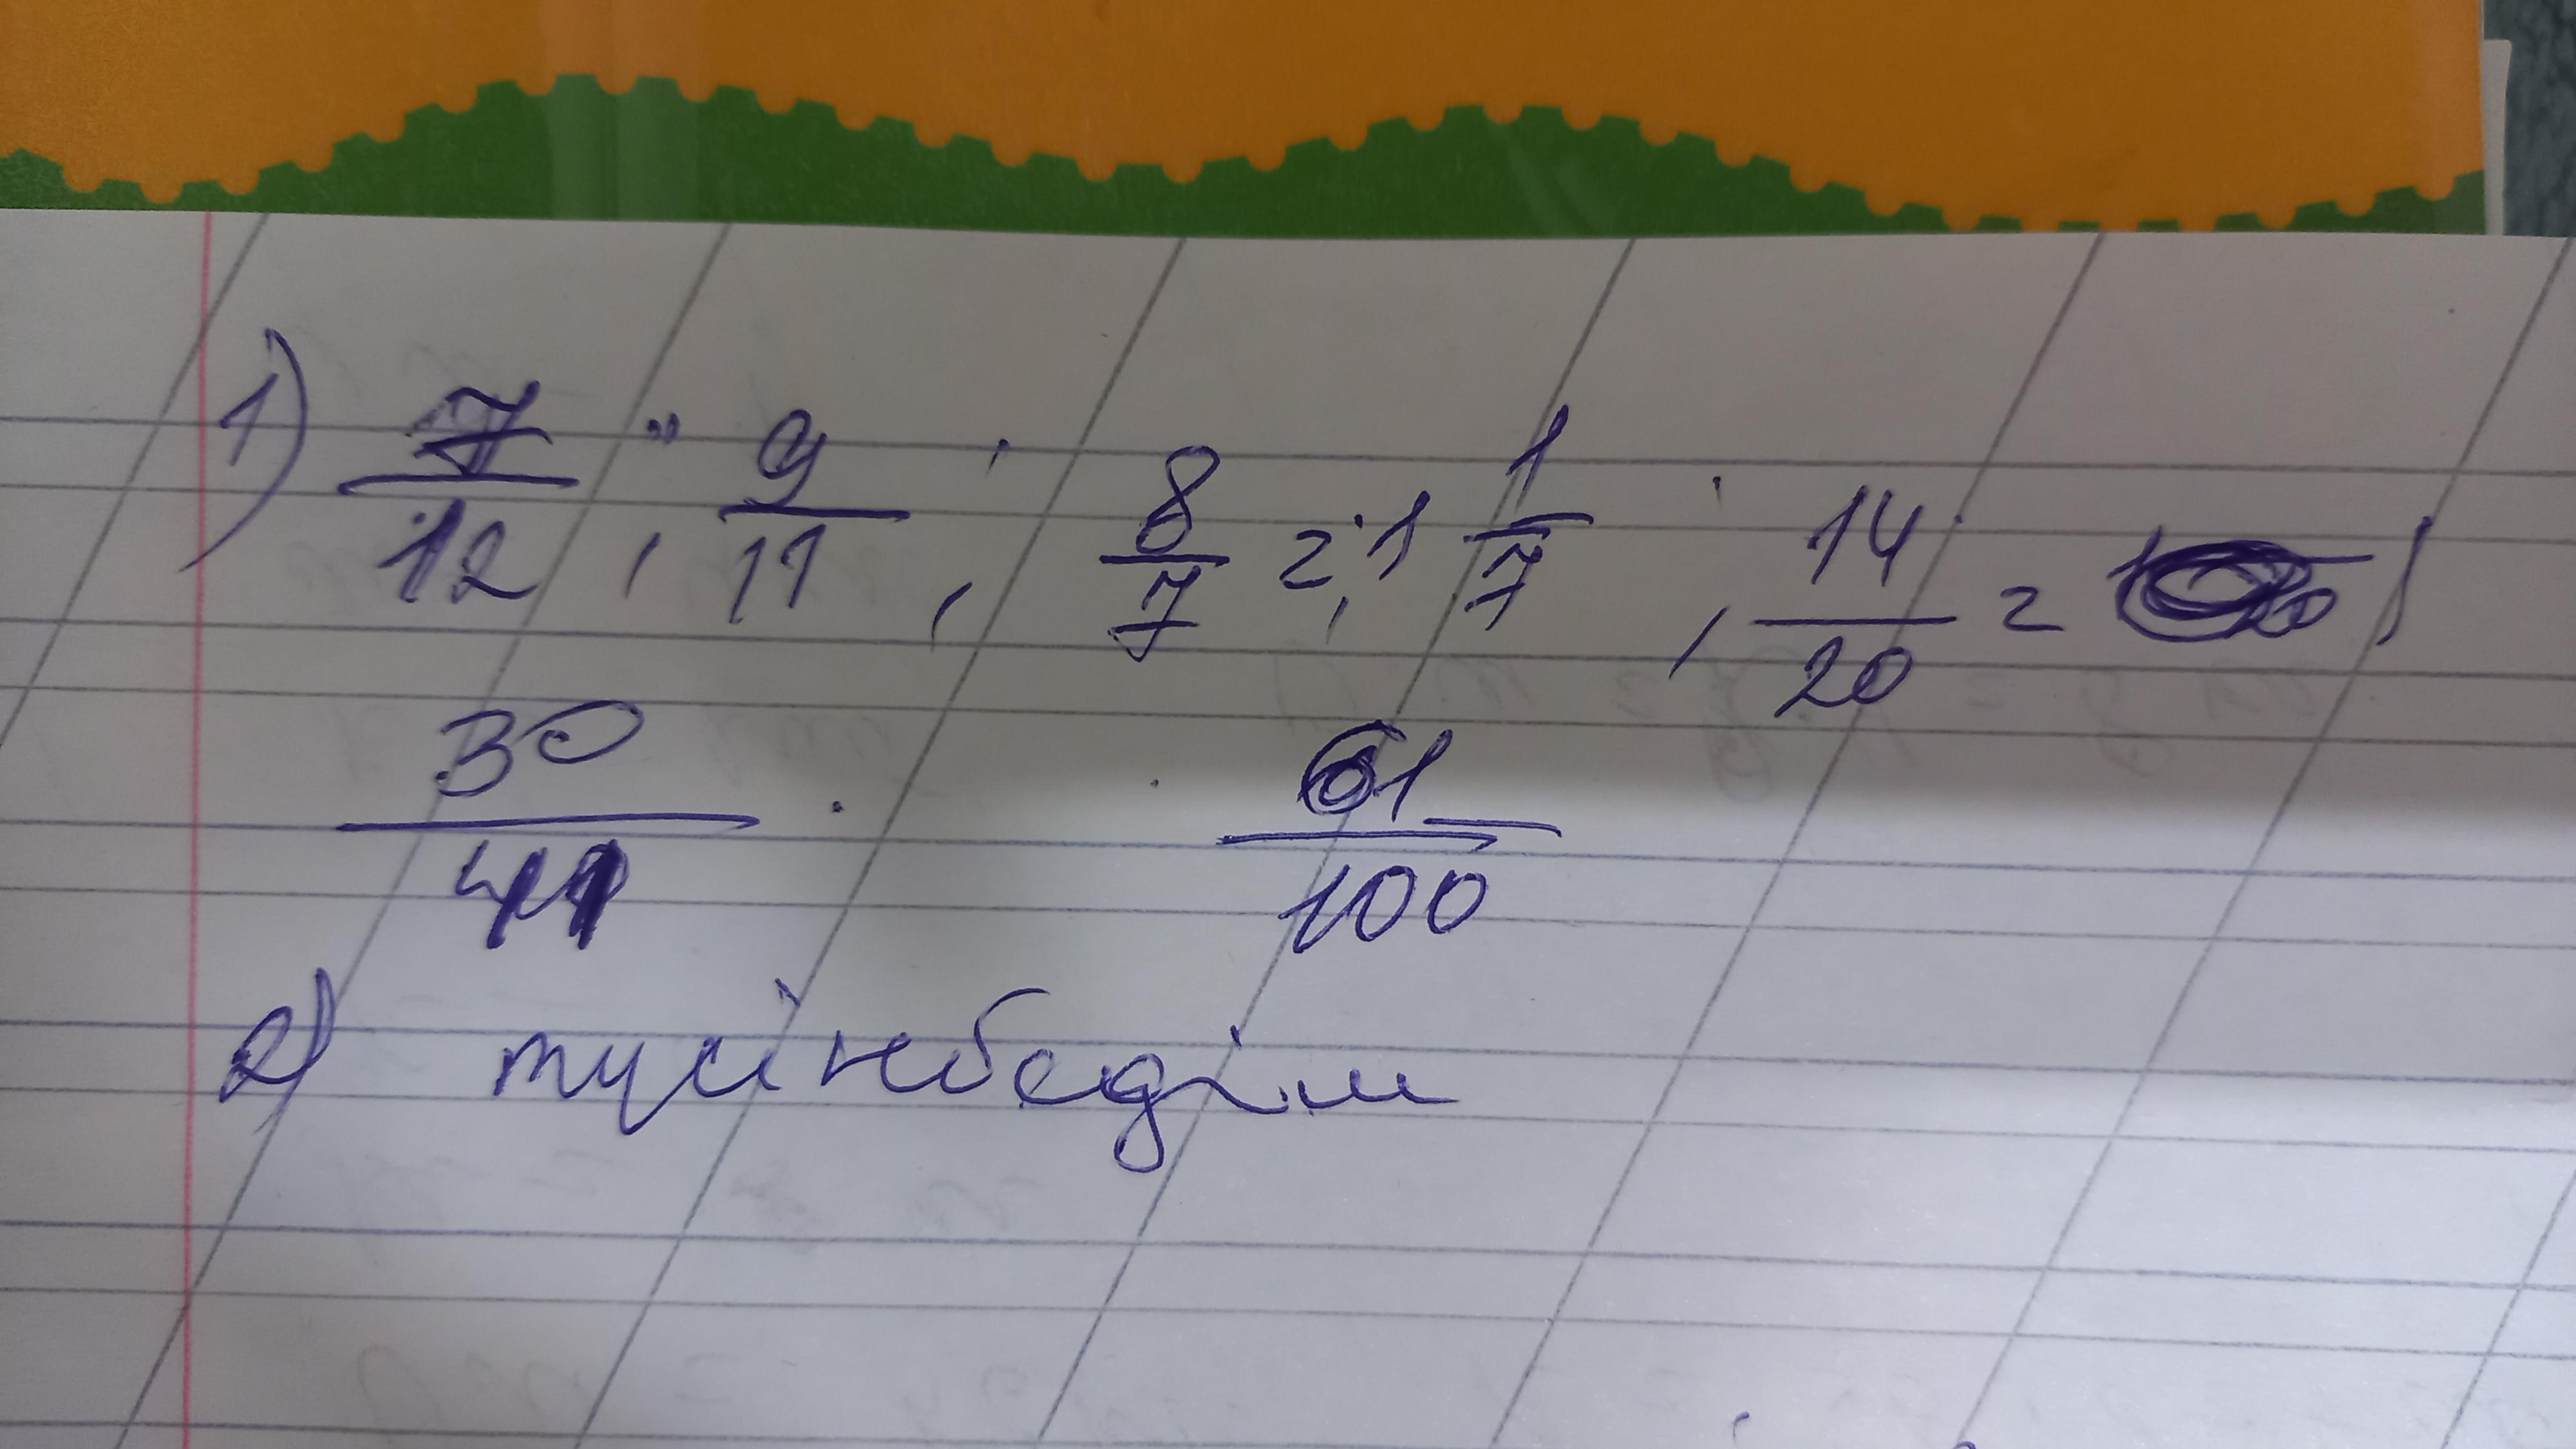 1) 7/12, 9/11, 8/7 = 1 1/7, 14/20 =
30/41 61/100
2) түсінбедім